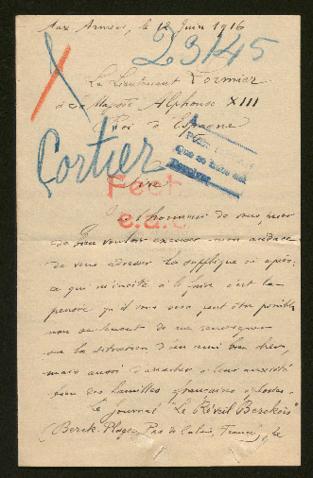 Aux Armées, le 12 Juin 1916
23145
Le Lieutenant Cormier
à Sa Majesté Alphonse XIII
Roi d'Espagne
Cortier
Sire
J'ai l'honneur de vous prier
de bien vouloir excuser mon audace
de vous adresser la supplique ci après.
ce qui m'incite à le faire c'est la
pensée qu'il vous sera peut être possible
non seulement de me renseigner
sur la situation d'un ami bien cher,
mais aussi d'arracher à leur anxiété
bien des familles françaises éplorées.
Le journal "Le Réveil Berckois"
(Berck-Plage, Pas de Calais, France), le